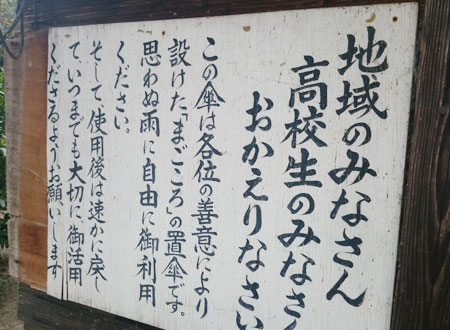 地域のみなさん
高校生のみなさ
おかえりなさい
この傘は各位の善意により
設けた「まごころ」の置傘です。
思わぬ雨に自由に御利用
ください。
そして、使用後は速かに戻し
て、いつまでも大切に、御活用
くださるよう、お願いします